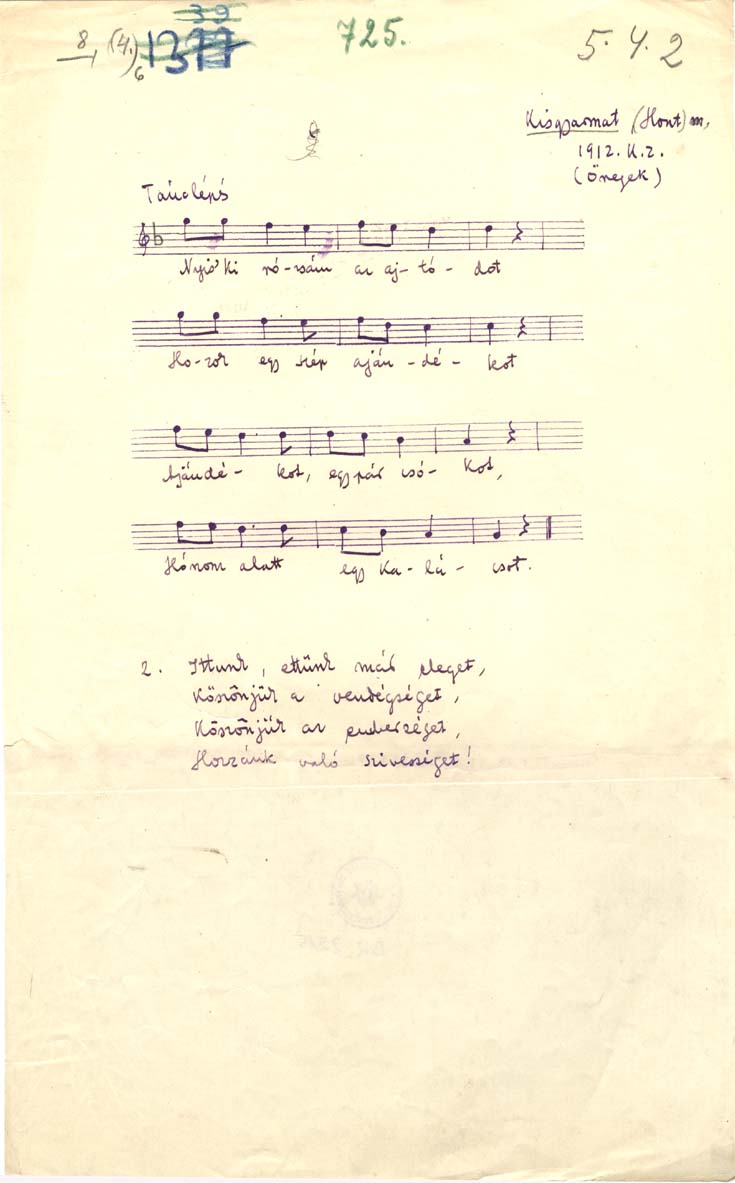 39
8, (4.)6 1377
725.
5. 4. 2
Kisgyarmat (Hont) m,
1912. K.z.
(Öregek)
Tánclépés
Nyis' ki ró-zsám az aj-tó-dot
Ho-zok egy szép aján-dé-kot
Ajándé-kot, egy pár csó-kot,
Hónom alatt egy ka-lá-csot.
2. Ittunk, ettünk már eleget,
Köszönjük a vendégséget,
Köszönjük az emberséget,
Hozzánk való szivességet!